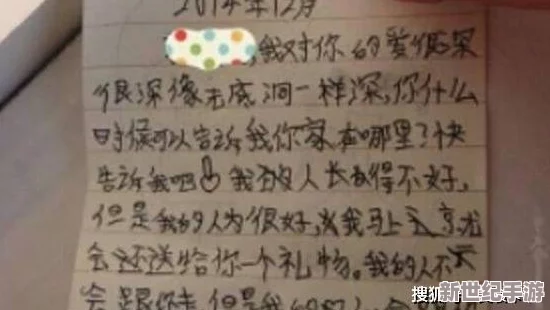 2014年12月
,我对你的爱很深
很深像无底洞一样深,你什么
时候可以告诉我你家在哪里了快
告诉我吧 我的人长得不好,
但是我的人为很好,我马上
会还送给你一个礼物。我的人不
会跟你走,但是我的
搜狐
新世纪手游